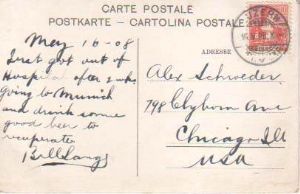 CARTE POSTALE
POSTKARTE - CARTOLINA POSTALE
ADRESSE
May 16-08
Just got out of
Hospital after 2 wks
going to Munich
and drink some
good beer to
recuperate
Bill Lang
Alex Schroeder
748 Clyborn Ave
Chicago Ill
USA